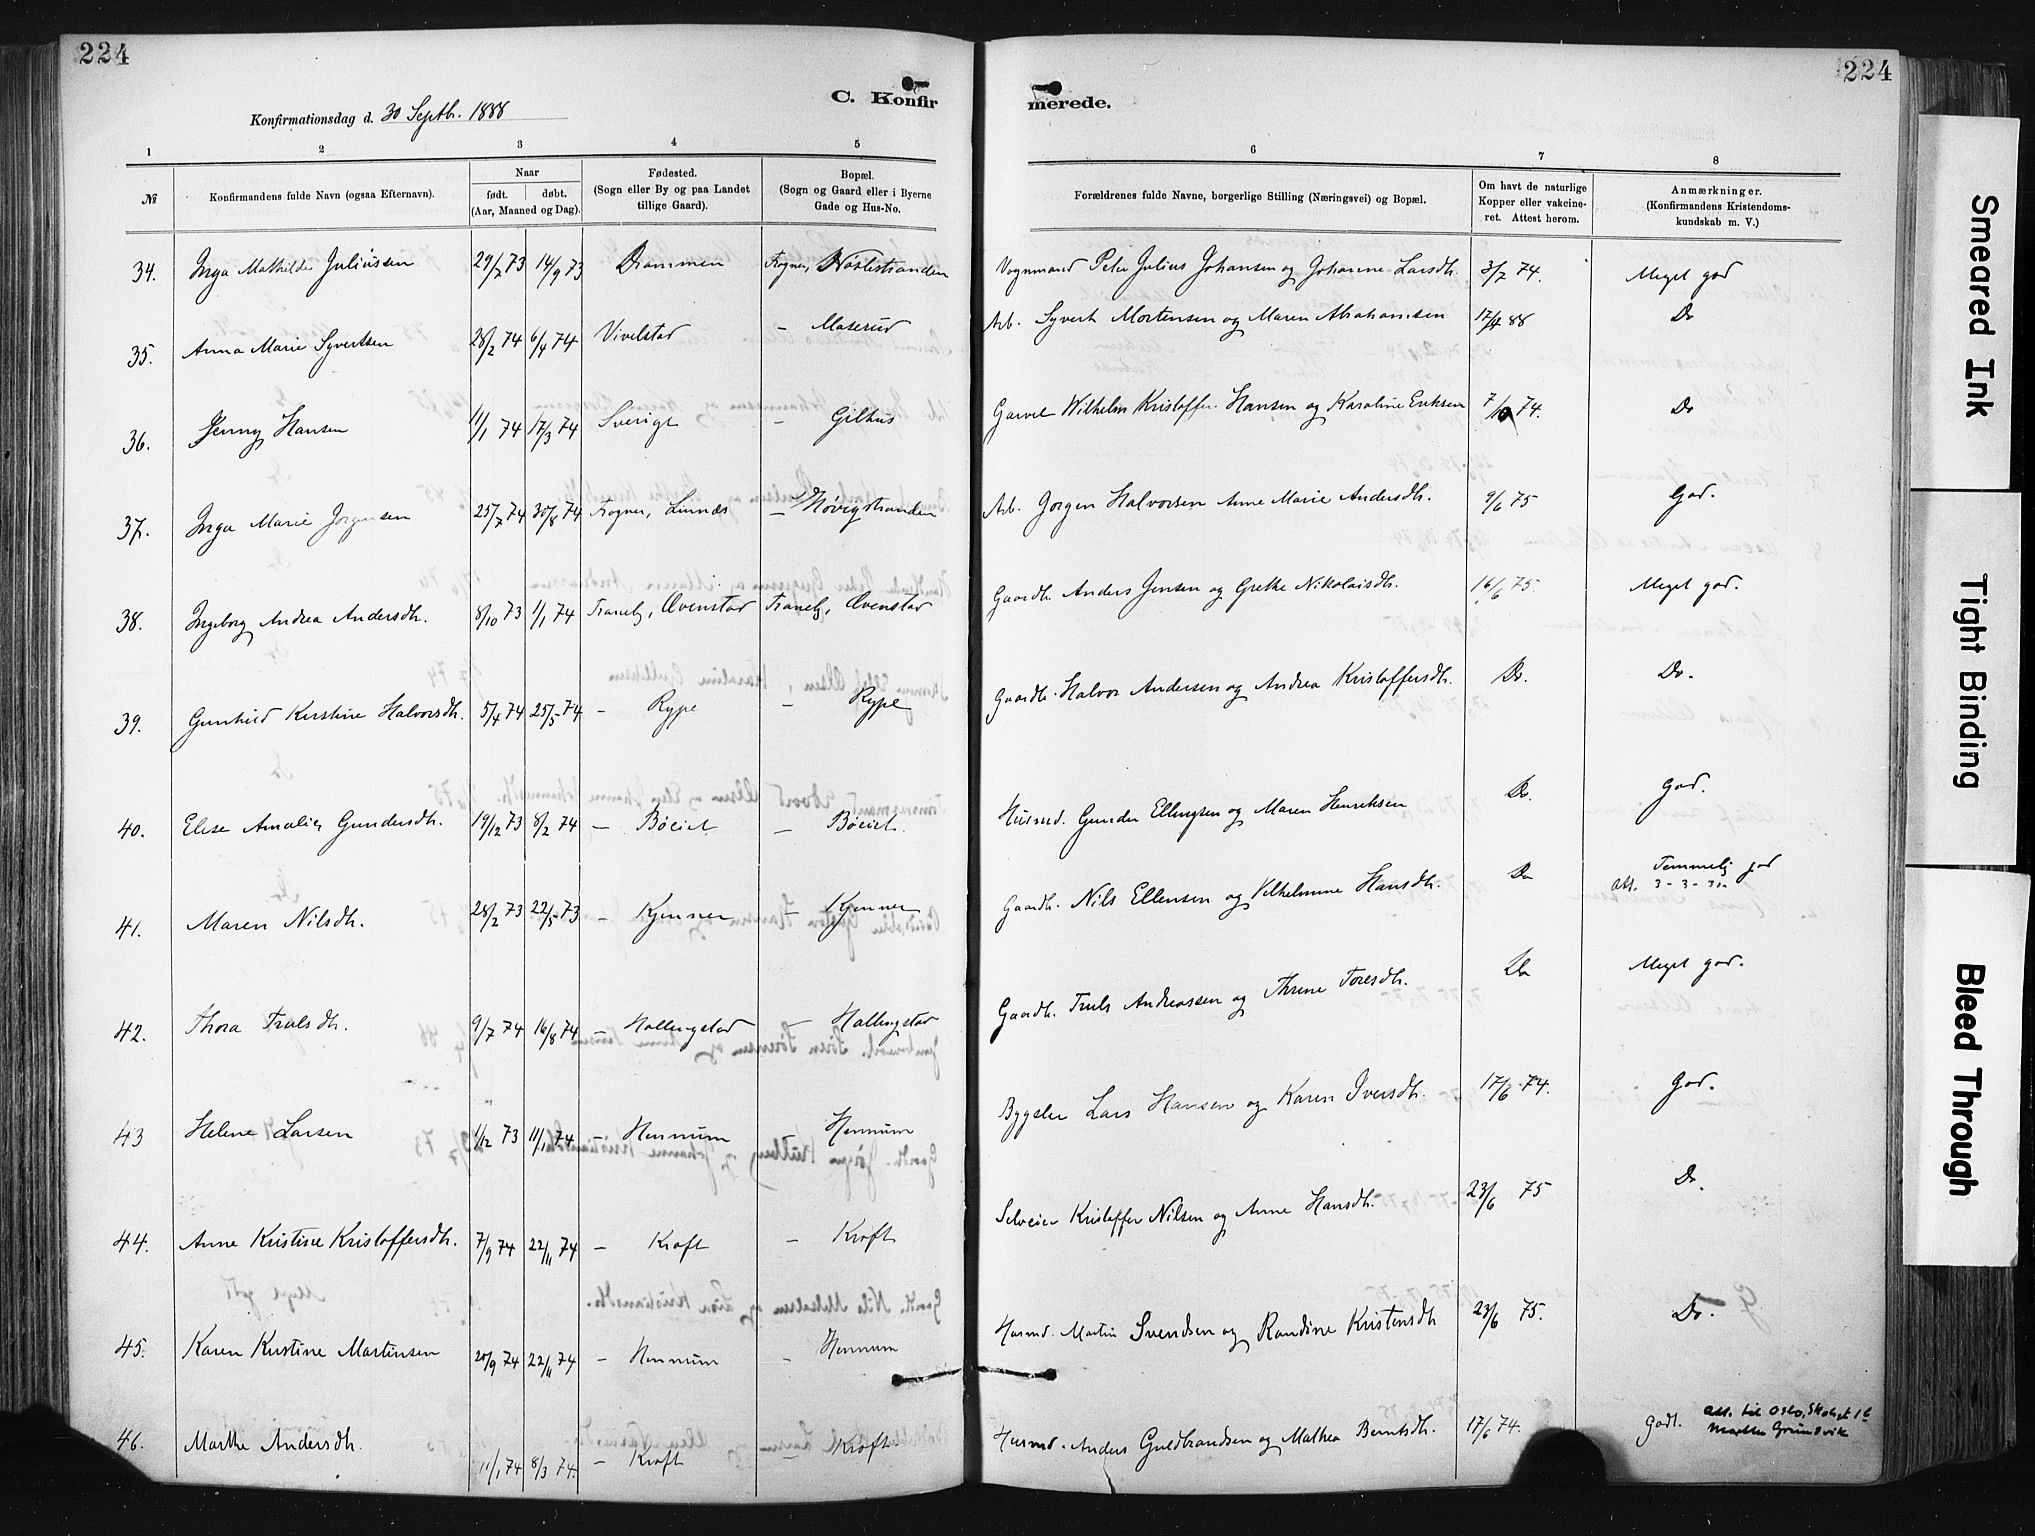 224
224
C. Konfirmerede.
Konfirmationsdag d. 30 Septbr. 1888
1 2 3 4 5 6 7 8
№
Konfirmandens fulde Navn (ogsaa Efternavn).
Naar
født. døbt.
(Aar, Maaned og Dag).
Fødested.
(Sogn eller By og paa Landet
tillige Gaard).
Bopæl.
(Sogn og Gaard eller i Byerne
Gade og Hus-No.
Forældrenes fulde Navne, borgerlige Stilling (Næringsvei) og Bopæl.
Om havt de naturlige
Kopper eller vakcine-
ret. Attest herom.
Anmærkninger.
(Konfirmandens Kristendoms-
kundskab m. V.)
34. Inga Mathilde Juliussen 29/7 73 14/9 73 Drammen Frogner, Nøstestranden Vognmand Peter Julius Johansen og Johanne Larsdtr. 3/7 74. Meget god
35. Anna Marie Syvertsen 28/2 74 6/4 74 Vivelstad – Maserud Arb. Syvert Mortensen og Maren Abrahamsen 88 Do
36. Jenny Hansen 11/1 74 17/3 74 Sverige – Gilhus Garver Wilhelm Kristoffer Hansen og Karoline Eriksen 7/10 74. Do
37. Inga Marie Jørgensen 25/7 74 30/8 74 Frogner, Linnæs – Nøvigstranden Arb. Jørgen Halvorsen Anne Marie Andersdtr. 9/6 75 God.
38. Ingeborg Andrea Andersdtr. 8/10 73 1/1 74 Traneby, Øvenstad Traneby, Øvenstad Gaardbr. Anders Jensen og Grethe Nikolaisdtr. 16/6 75. Meget god.
39. Gunhild Kirstine Halvorsdtr. 5/4 74 25/5 74 – Rype – Rype Gaardbr. Halvor Andersen og Andrea Kristoffersdtr. Do. Do.
40. Elise Amalie Gundersdtr. 19/12 73 8/2 74 – Böeiet – Böeiet. Husmd. Gunder Ellingsen og Maren Henriksen Do. God.
41. Maren Nilsdtr. 28/2 73 22/5 73 – Kjenner – Kjenner Gaardbr. Nils Ellensen og Vilhelmine Hansdtr. Do Temmelig god
att. 3-3-31.
42. Thora Trulsdtr. 9/7 74 16/8 74 – Hallingstad – Hallingstad Gaardbr. Truls Andreassen og Thrine Toresdtr. Do Meget god.
43 Helene Larsen 1/12 73 11/1 74 – Hennum Hennum Bygsler Lars Hansen og Karen Iversdtr. 17/6 74. God.
44. Anne Kristine Kristoffersdtr. 7/9 74 22/11 74 – Kroft – Kroft Selveier Kristoffer Nilsen og Anne Hansdtr. 23/6 75 Do.
45. Karen Kristine Martinsen 20/9 74 22/11 74 – Hennum – Hennum Husmd. Martin Svendsen og Randine Kristensdtr 23/6 75. Do.
46. Marthe Andersdtr. 11/1 74 8/3 74. – Kroft – Kroft Husmd. Anders Guldbrandsen og Mathea Berntsdtr. 17/6 74. Godt. att. til Oslo,
Marthe Grunsvik
Smeared Ink
Tight Binding
Bleed Through